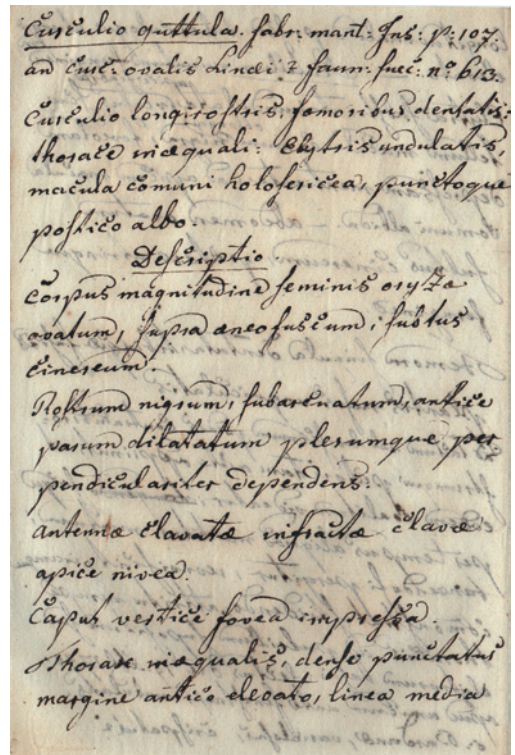 Curculio guttula. Fabr: mant: Ins: p: 107.
an Curc: ovalis Linnæi? Faun: suec: nº 613.
Curculio longirostris, femoribus dentatis:
thorace inæquali: Elytris undulatis,
macula comuni holosericea, punctoque
postico albo.
Descriptio
Corpus magnitudine seminis oryzæ
ovatum, supra æneofuscum, subtus
cinereum.
Rostrum nigrum, subarcuatum, antice
parum dilatatum plerumque per
pendiculariter dependens.
Antennæ clavatæ infractæ clavæ
apice nivea.
Caput vertice fovea impressa.
Thorax inæqualis, dense punctatus
margine antico elevato, linea media